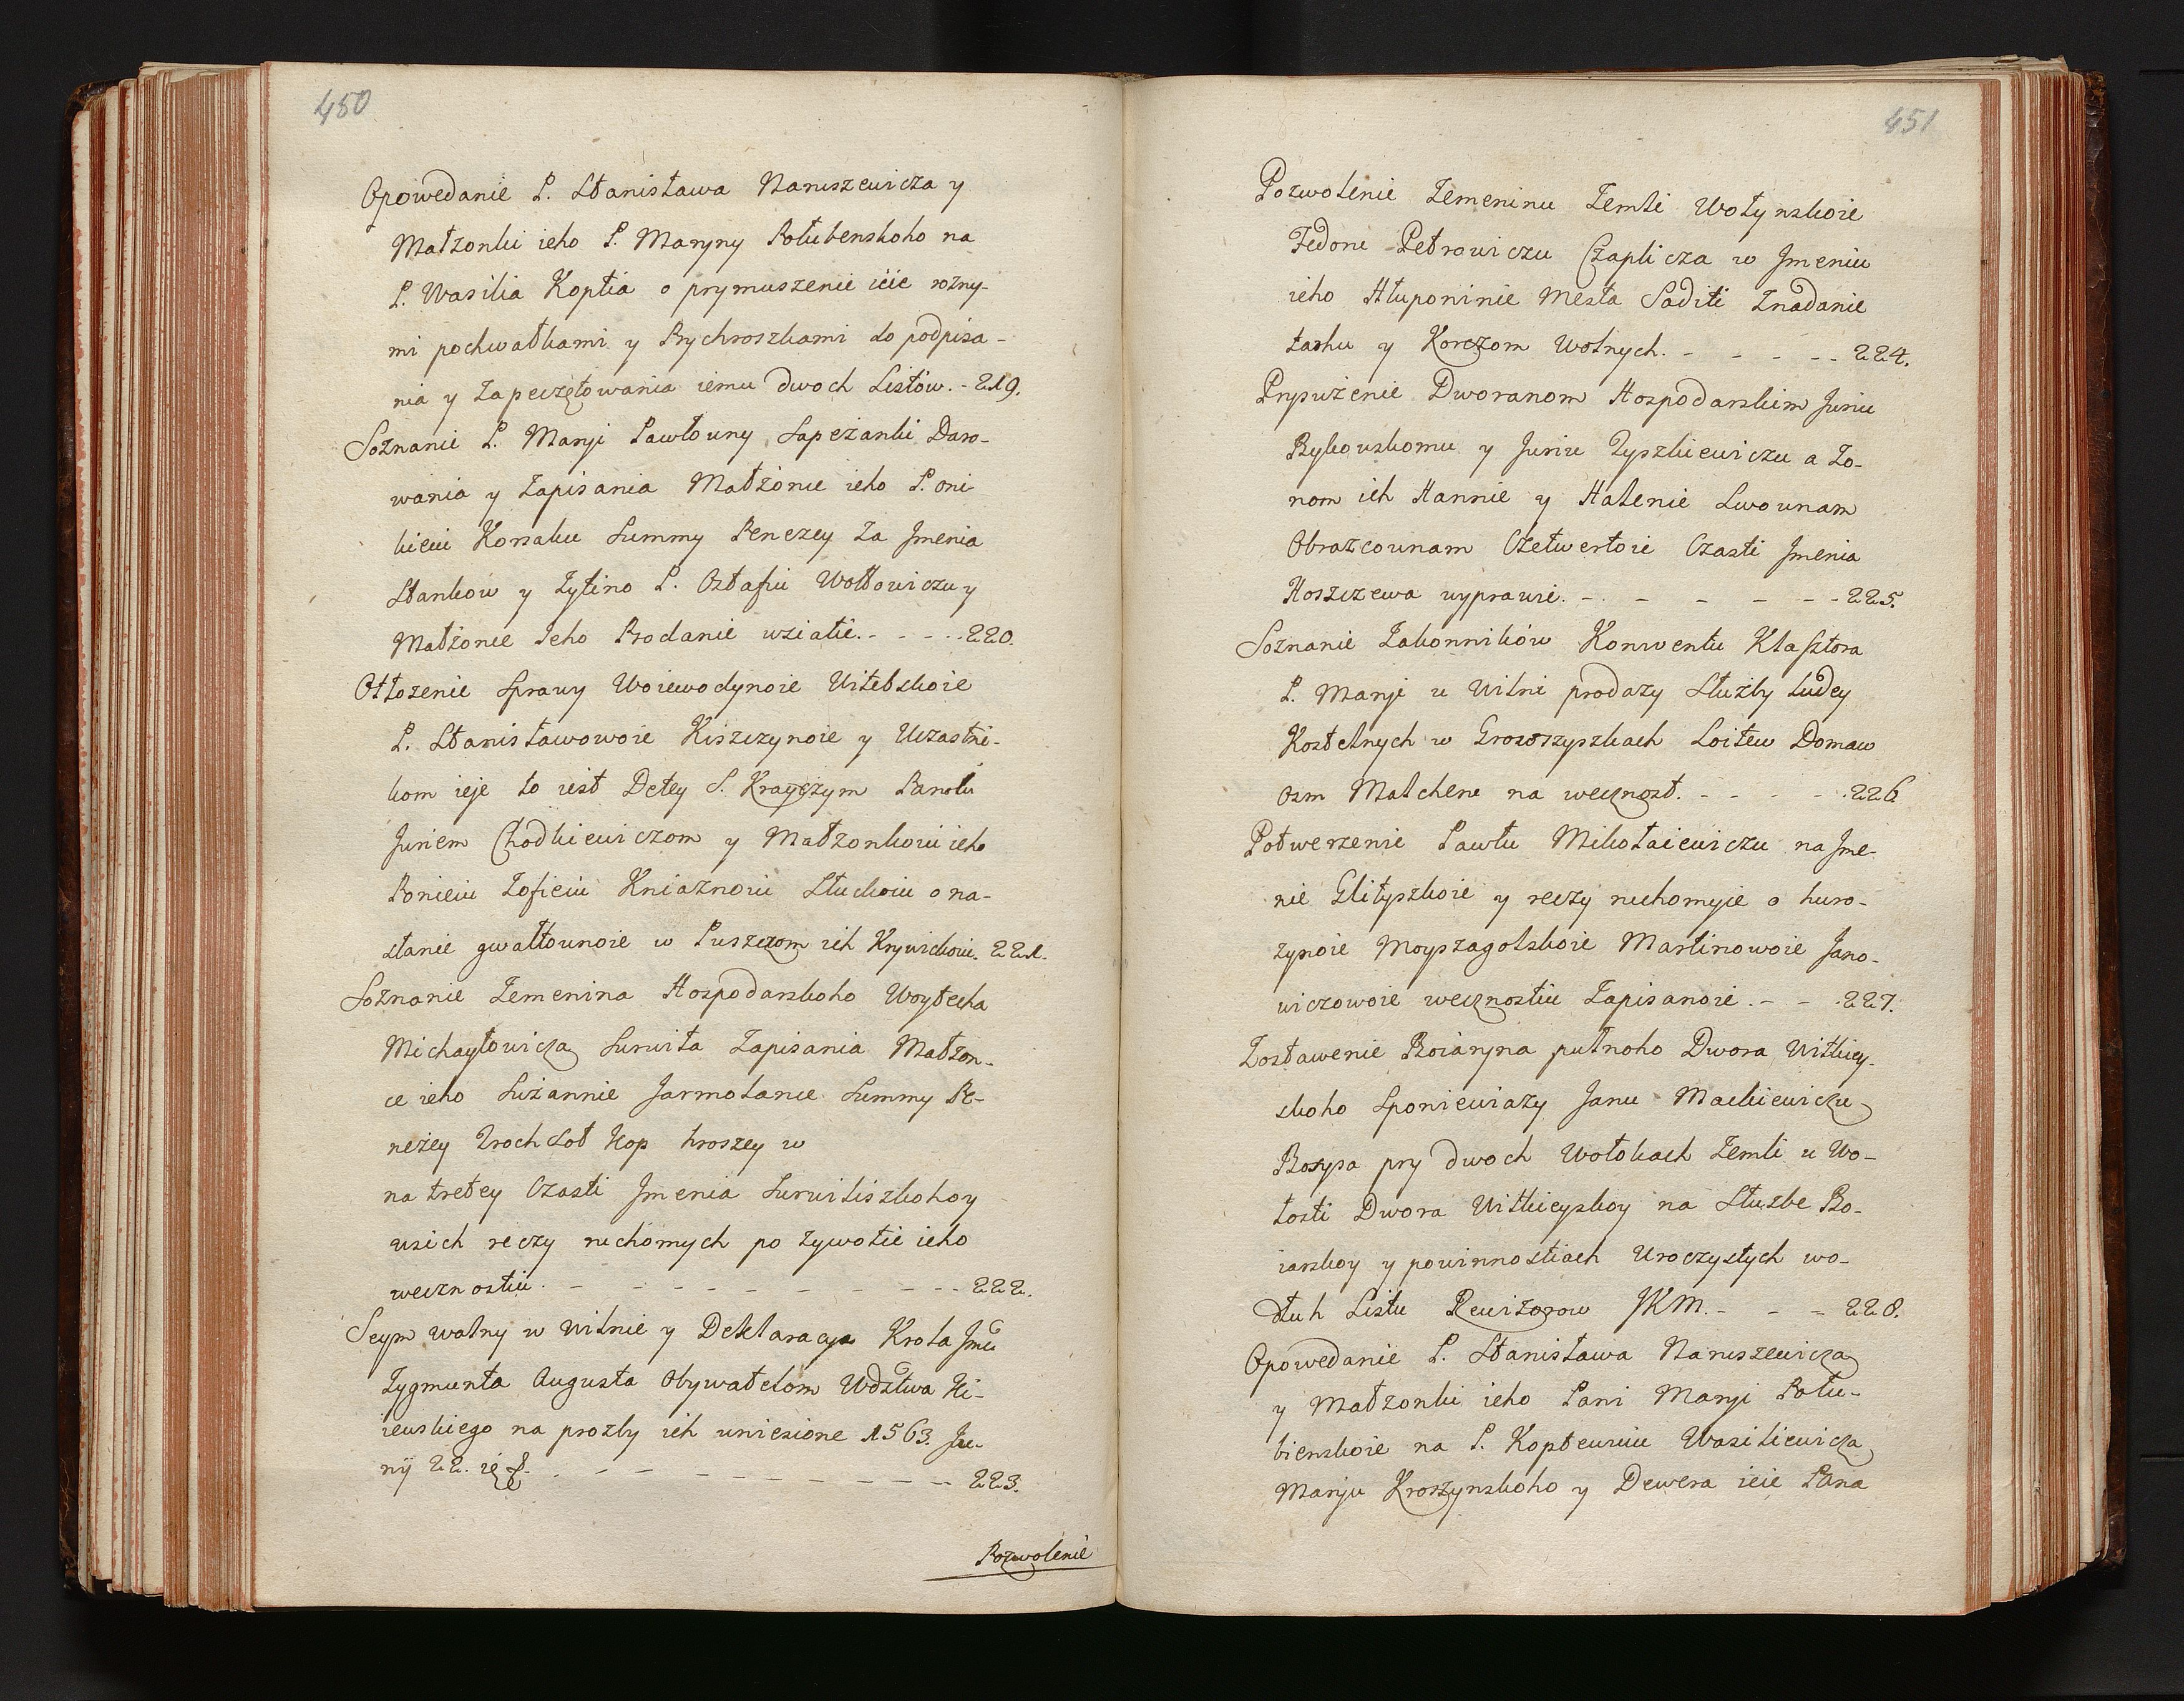 450
Opowedanie P. Stanisława Naruszewicza y
Małżonki ieho P. Maryny Połubenskoho na
P. Wasilia Koptia o prymuszenie ieie rozny-
mi pochwałkami y Prychroszkami do podpisa-
nia y Zapeczętowania iemu dwoch Listów. - 219.
Soznanie P. Maryi Pawłouny Sapeżanki Daro-
wania y Zapisania Małżónce ieho P. oni-
kieiu Korsaku Summy Penezey Za Jmenia
Stankow y Żytino P. Ostafiu Wołłowiczu y
Małżonce Jeho Prodanie wziatie. - - - - 220.
Otłozenie Sprawy Woiewodynoie Witebskoie
P. Stanisławowoie Kiszczynoie y Uczastni-
kom ieje to iest Detey S. Krayczym Panom
Juriem Chodkiewiczom y Małżonkoiu ieho
Panieiu Zofieiu Kniaznoiu Słuckoiu o na-
słanie gwałtounoie w Puszczom ich Krywickoiu. 221.
Soznanie Zemenina Hospodarskoho Woytecha
Michayłowicza Surwiła Zapisania Małżon-
ce ieho Zuzannie Jarmołance Summy Pe-
neżey Troch Sot Kop hroszey w
na tretey Czasti Jmenia Surwiliszkohoy
wsich reczy ruchomych po Zywotie ieho
wecznostiu. - - - - - - - - - 222.
Seym walny w Wilnie y Deklaracya Krola Jmci
Zygmunta Augusta Obywatelom Wdztwa Ki-
iewskiego na prozby ich uniesione 1563. Ju-
nij 22. - - - - - - - - 223.
Pozwolenie
451
Pozwolenie Zemeninu Zemli Wołynskoie
Fedoru Petrowiczu Czaplicza w Jmeniu
ieho Hłuponinie Mesta Saditi Znadanie
tarhu y Korczom Wolnych. - - - - - 224.
Prypużenie Dworanom Hospodarskim Juriu
Bykouskomu y Juriu Tyszkiewiczu a Żo-
nom ich Hannie y Halenie Lwounam
Obrazcounam Czetwertoie Czasti Jmenia
Hoszczewa wyprawie. - - - - - - 225.
Soznanie Zakonników Konwentu Klasztora
P. Maryi u Wilni prodazy Słuzby ludey
Kostelnych w Groszyszkach Loitew Domaw
Osm Malcheru na wecznost. - - - - 226
Potwerzenie Pawłu Mikołaiewiczu na Jme-
nie Glityszkoie y reczy ruchomyie o huro-
zynoie Moyszagolskoie Martinowoie Jano-
wiczowoie wecznostiu Zapisanoie. - - 227.
Zostawenie Boiaryna putnoho Dwora Witkiey-
skoho Sponiewiazy Janu Mackiewiczu
Borysa pry dwoch Wołokach Zemli u Wo-
łosti Dwora Witkieyskoy na Służbe Bo-
iarskoy y powinnostiach Uroczystych wo-
dłuh Listu Rewizorow JKM. - - - 228.
Opowedanie P. Stanisława Naruszewicza
y Małżonki ieho Pani Maryi Połu-
bienskoie na P. Koptewuiu Wasiliewicza
Maryu Kroszynskoho y Dewera ieie Pana